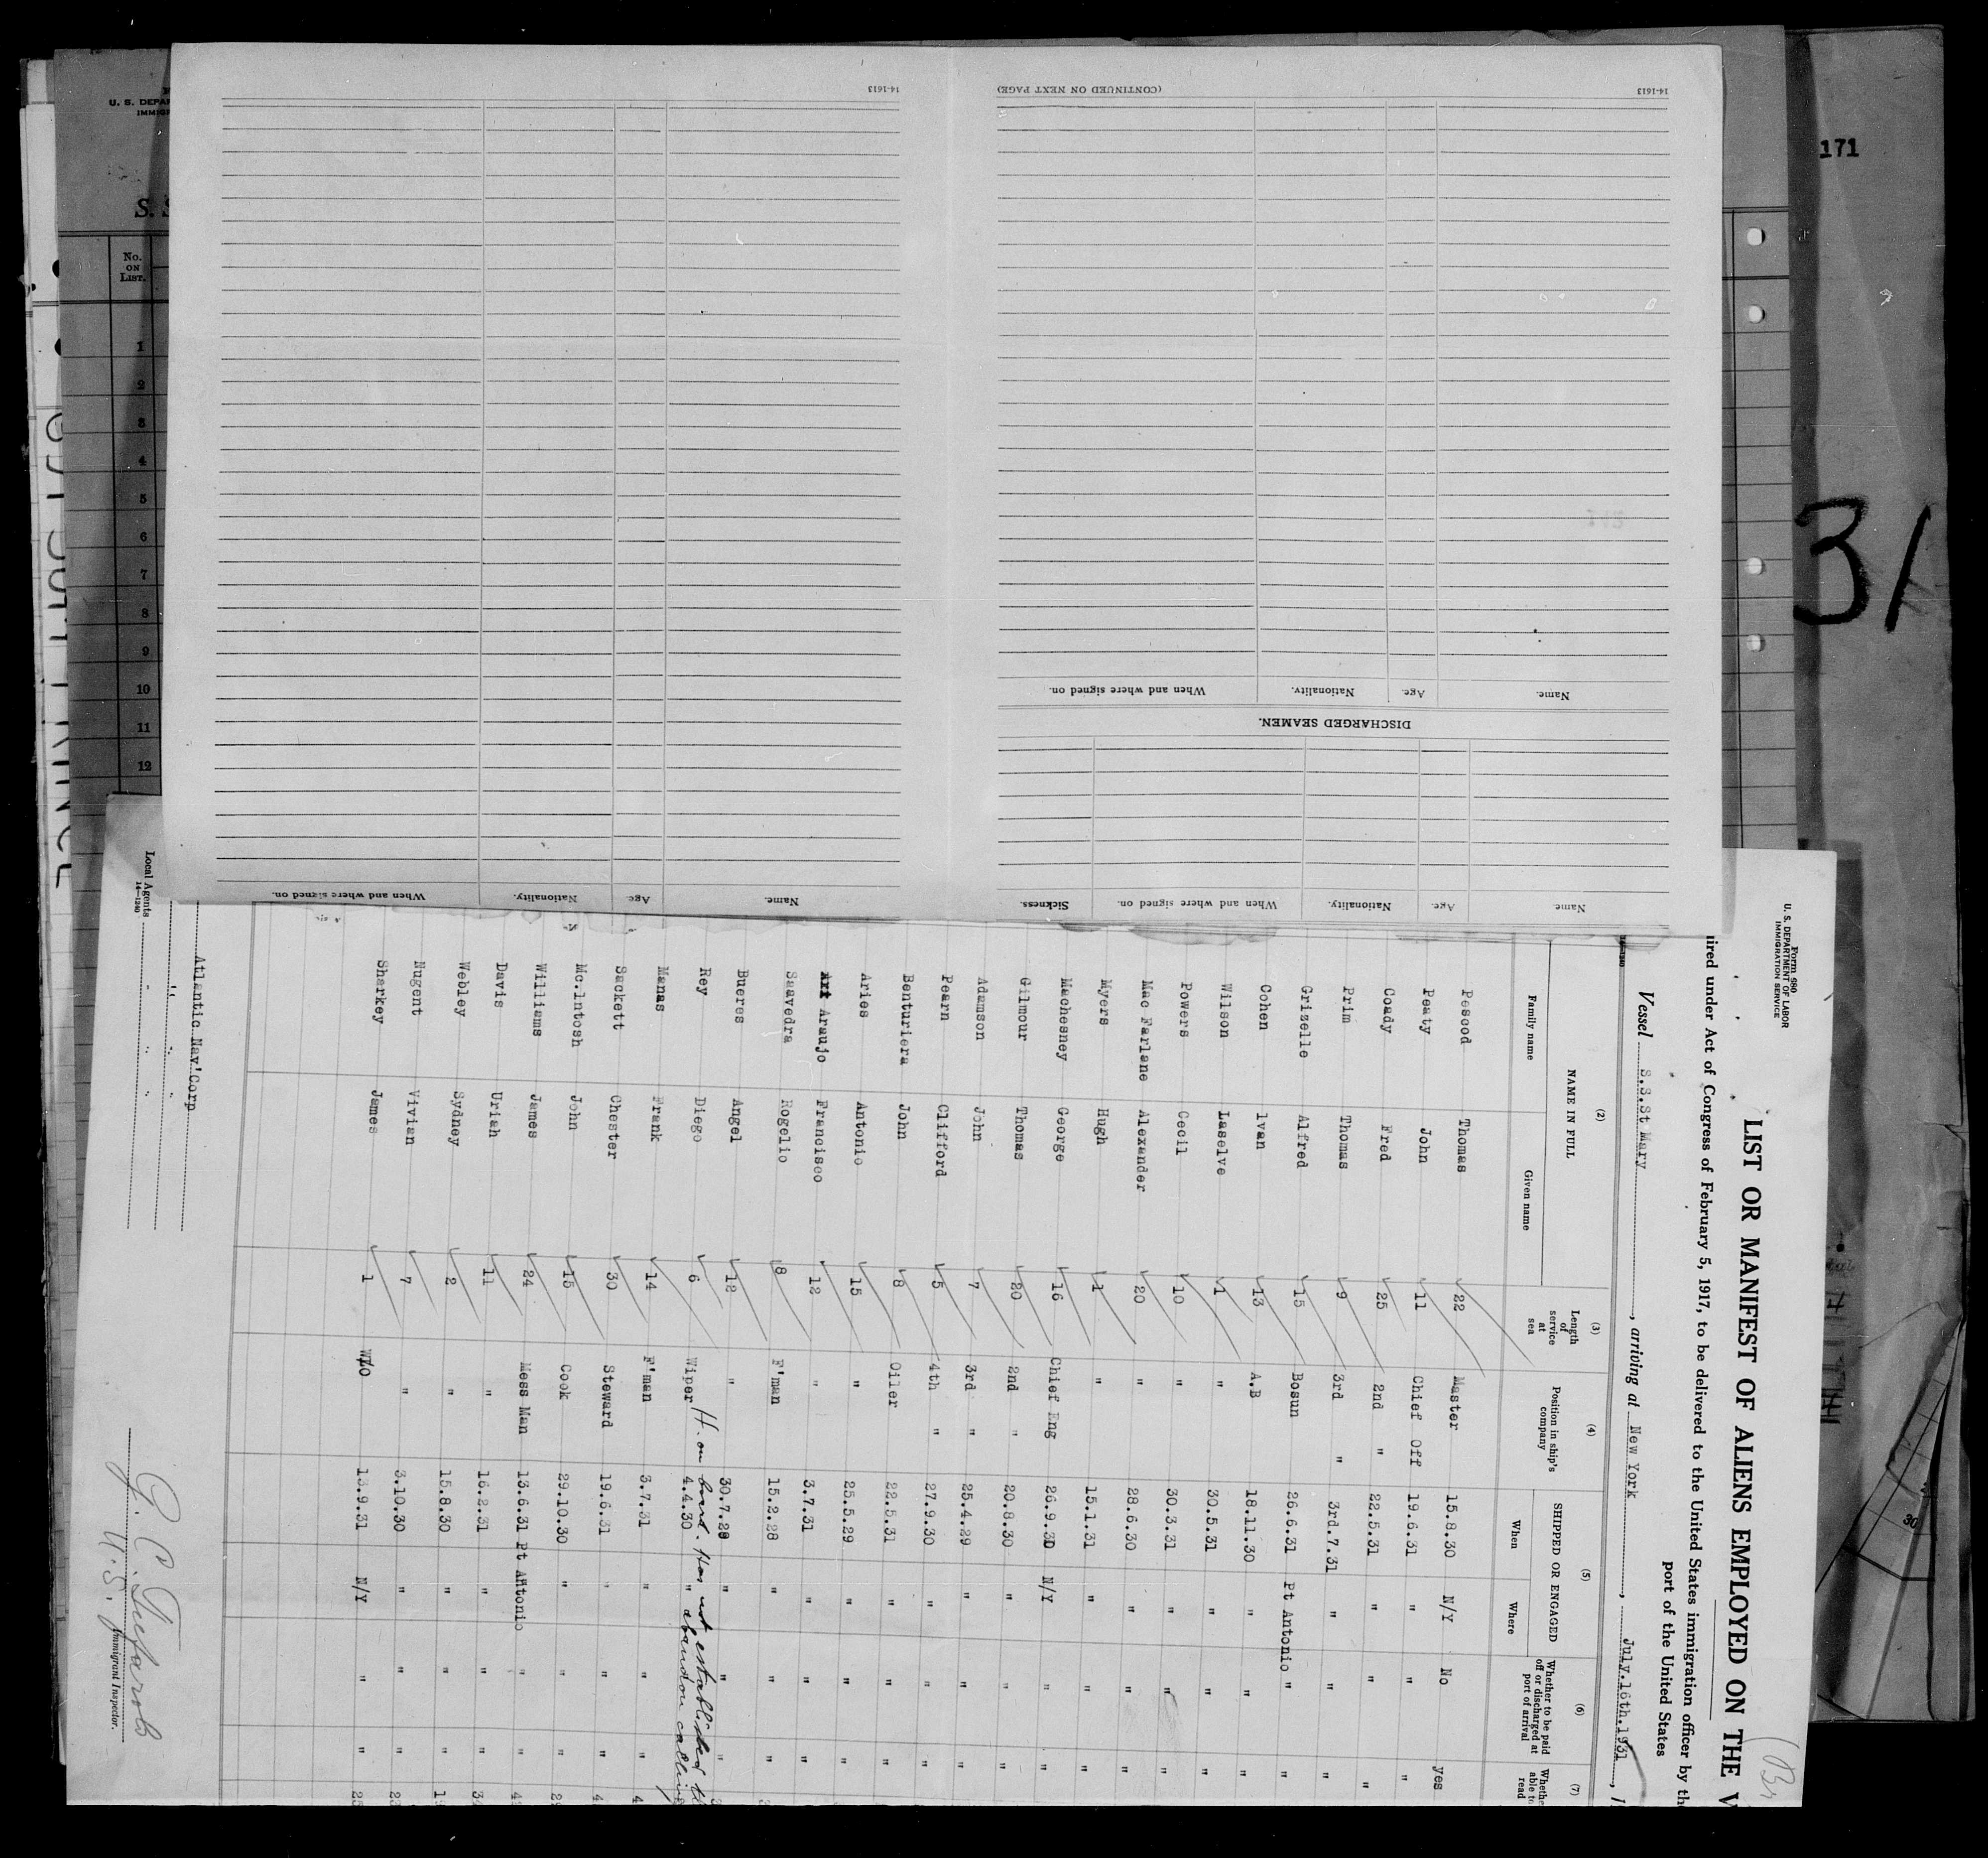 171
31
U. S. DEPAR
IMMIG
S. S
No.
ON
LIST.
1
2
3
4
5
6
7
8
9
10
11
12
14-1613
(CONTINUED ON NEXT PAGE)
14-1613
Name. Age. Nationality. When and where signed on.
DISCHARGED SEAMEN.
Name Age. Nationality. When and where signed on. Sickness.
Name. Age. Nationality. When and where signed on.
Form 680
U. S. DEPARTMENT OF LABOR
IMMIGRATION SERVICE
LIST OR MANIFEST OF ALIENS EMPLOYED ON THE V
ired under Act of Congress of February 5, 1917, to be delivered to the United States immigration officer by th
port of the United States
Vessel S.S.St Mary, arriving at New York, July.16th.1931, 1
(2) (3) (4) (5) (6) (7)
NAME IN FULL
Family name Given name
Length of service at sea
Position in ship's company
SHIPPED OR ENGAGED
When Where
Whether to be paid off or discharged at port of arrival
Whethe able to read
Pescod Thomas 22 Master 15.8.30 N/Y No yes
Peaty John 11 Chief Off 19.6.31 " " "
Coady Fred 25 2nd " 22.5.31 " " "
Prim Thomas 9 3rd " 3rd.7.31 " " "
Grizelle Alfred 15 Bosun 26.6.31 Pt Antonio " "
Cohen lvan 13 A.B 18.11.30 " " "
Wilson Laselve 1 " 30.5.31 " " "
Powers Cecil 10 " 30.3.31 " " "
Mac Farlane Alexander 20 " 28.6.30 " " "
Myers Hugh 1 " 15.1.31 " " "
Machesney George 16 Chief Eng 26.9.30 N/Y " "
Gilmour Thomas 20 2nd " 20.8.30 " " "
Adamson John 7 3rd " 25.4.29 " " "
Pearn Clifford 5 4th " 27.9.30 " " "
Benturiera John 8 Oiler 22.5.31 " " "
Aries Antonio 15 " 25.5.29 " " "
Araujo Francisco 12 " 3.7.31 " " "
Saavedra Rogelio 8 F'man 15.2.28 " " "
Bueres Angel 12 " 30.7.28 " " "
H. on board. Has not established
Rey Diego 6 Wiper 4.4.30 "
abandon calling
Manas Frank 14 F'man 3.7.31 " " " 4
Sackett Chester 30 Steward 19.6.31 " " " 4
Mc.lntosh John 15 Cook 29.10.30 " " " 29
Williams James 24 Mess Man 13.6.31 Pt Antonio " "
Davis Uriah 11 " 16.2.31 " " "
Webley Sydney 2 " 15.8.30 " " "
Nugent Vivian 7 " 3.10.30 " " "
Sharkey James 1 13.9.31 N/Y " " 25
Atlantic Nav'Corp
Local Agents
14-1240
U.S.
Immigrant Inspector.
30